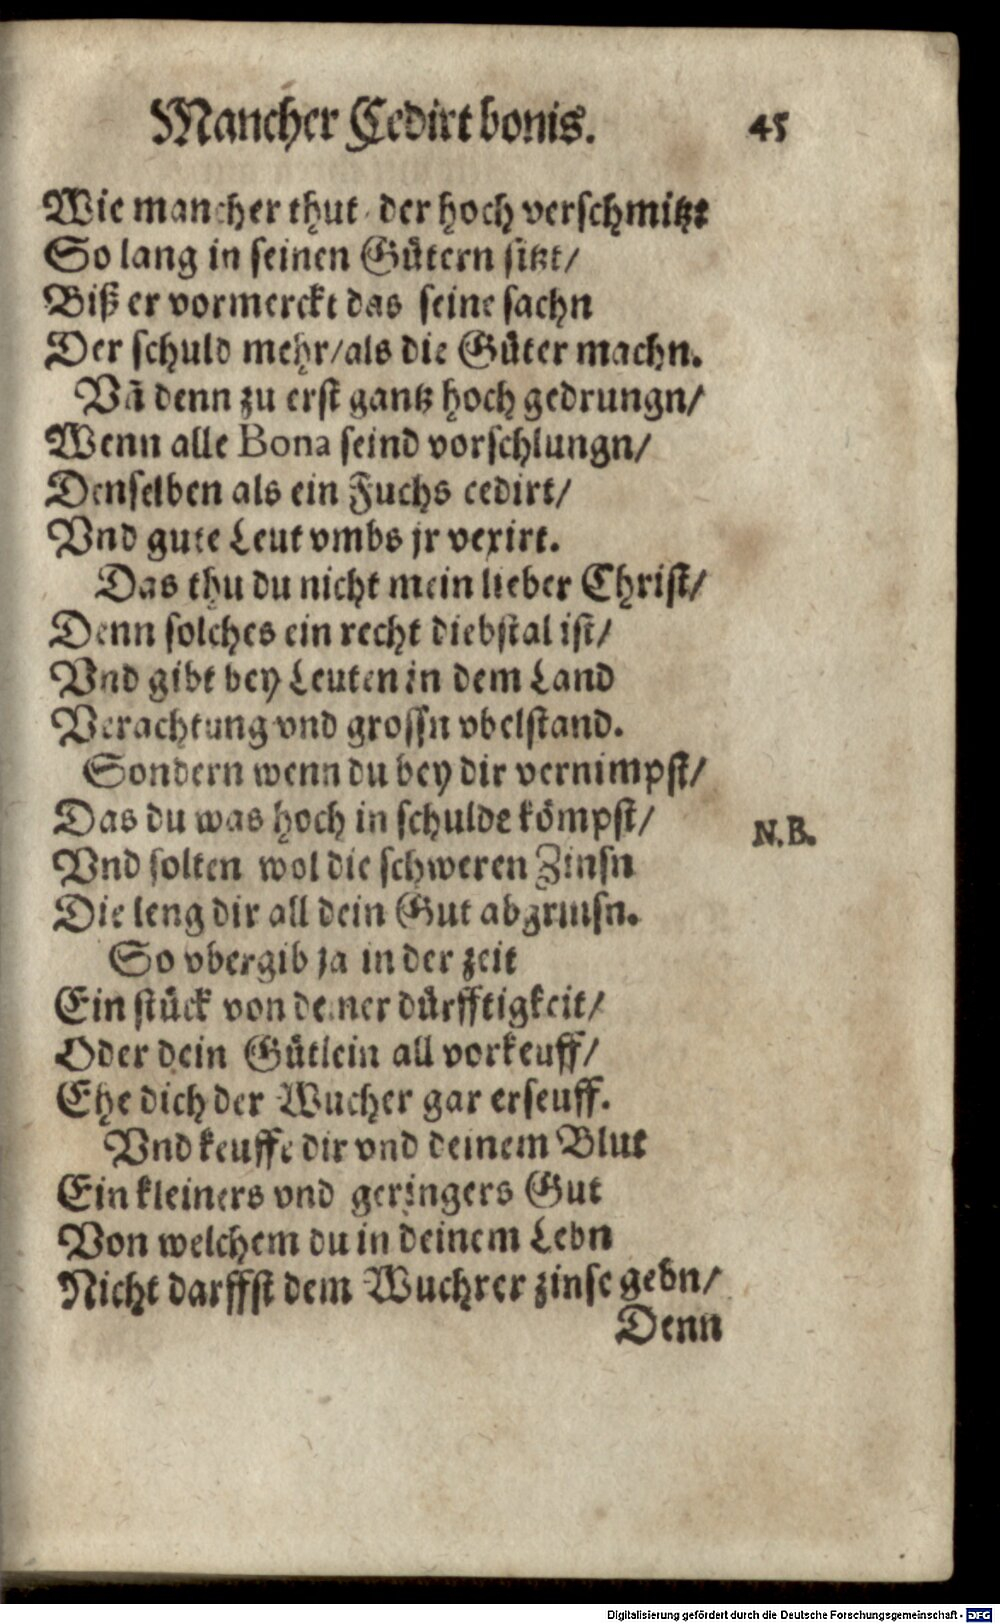 Mancher Cedirt bonis. 45
Wie mancher thut / der hoch verschmitzt
So lang in seinen Gütern sitzt/
Biß er vormerckt das seine sachn
Der schuld mehr/als die Güter machn.
Vñ denn zu erst gantz hoch gedrungn/
Wenn alle Bona seind vorschlungn/
Denselben als ein Fuchs cedirt/
Vnd gute Leut vmbs jr vexirt.
Das thu du nicht mein lieber Christ/
Denn solches ein recht diebstal ist/
Vnd gibt bey Leuten in dem Land
Verachtung vnd grossn vbelstand.
Sondern wenn du bey dir vernimpst/
Das du was hoch in schulde kömpst/
N.B.
Vnd solten wol die schweren Zinsn
Die leng dir all dein Gut
So vbergib ja in der zeit
Ein stück von deiner dürfftigkeit/
Oder dein Gütlein all vorkeuff/
Ehe dich der Wucher gar erseuff.
Vnd keuffe dir vnd deinem Blut
Ein kleiners vnd geringers Gut
Von welchem du in deinem Lebn
Nicht darffst dem Wuchrer zinse gebn/
Denn
Digitalisierung gefördert durch die Deutsche Forschungsgemeinschaft - DFG